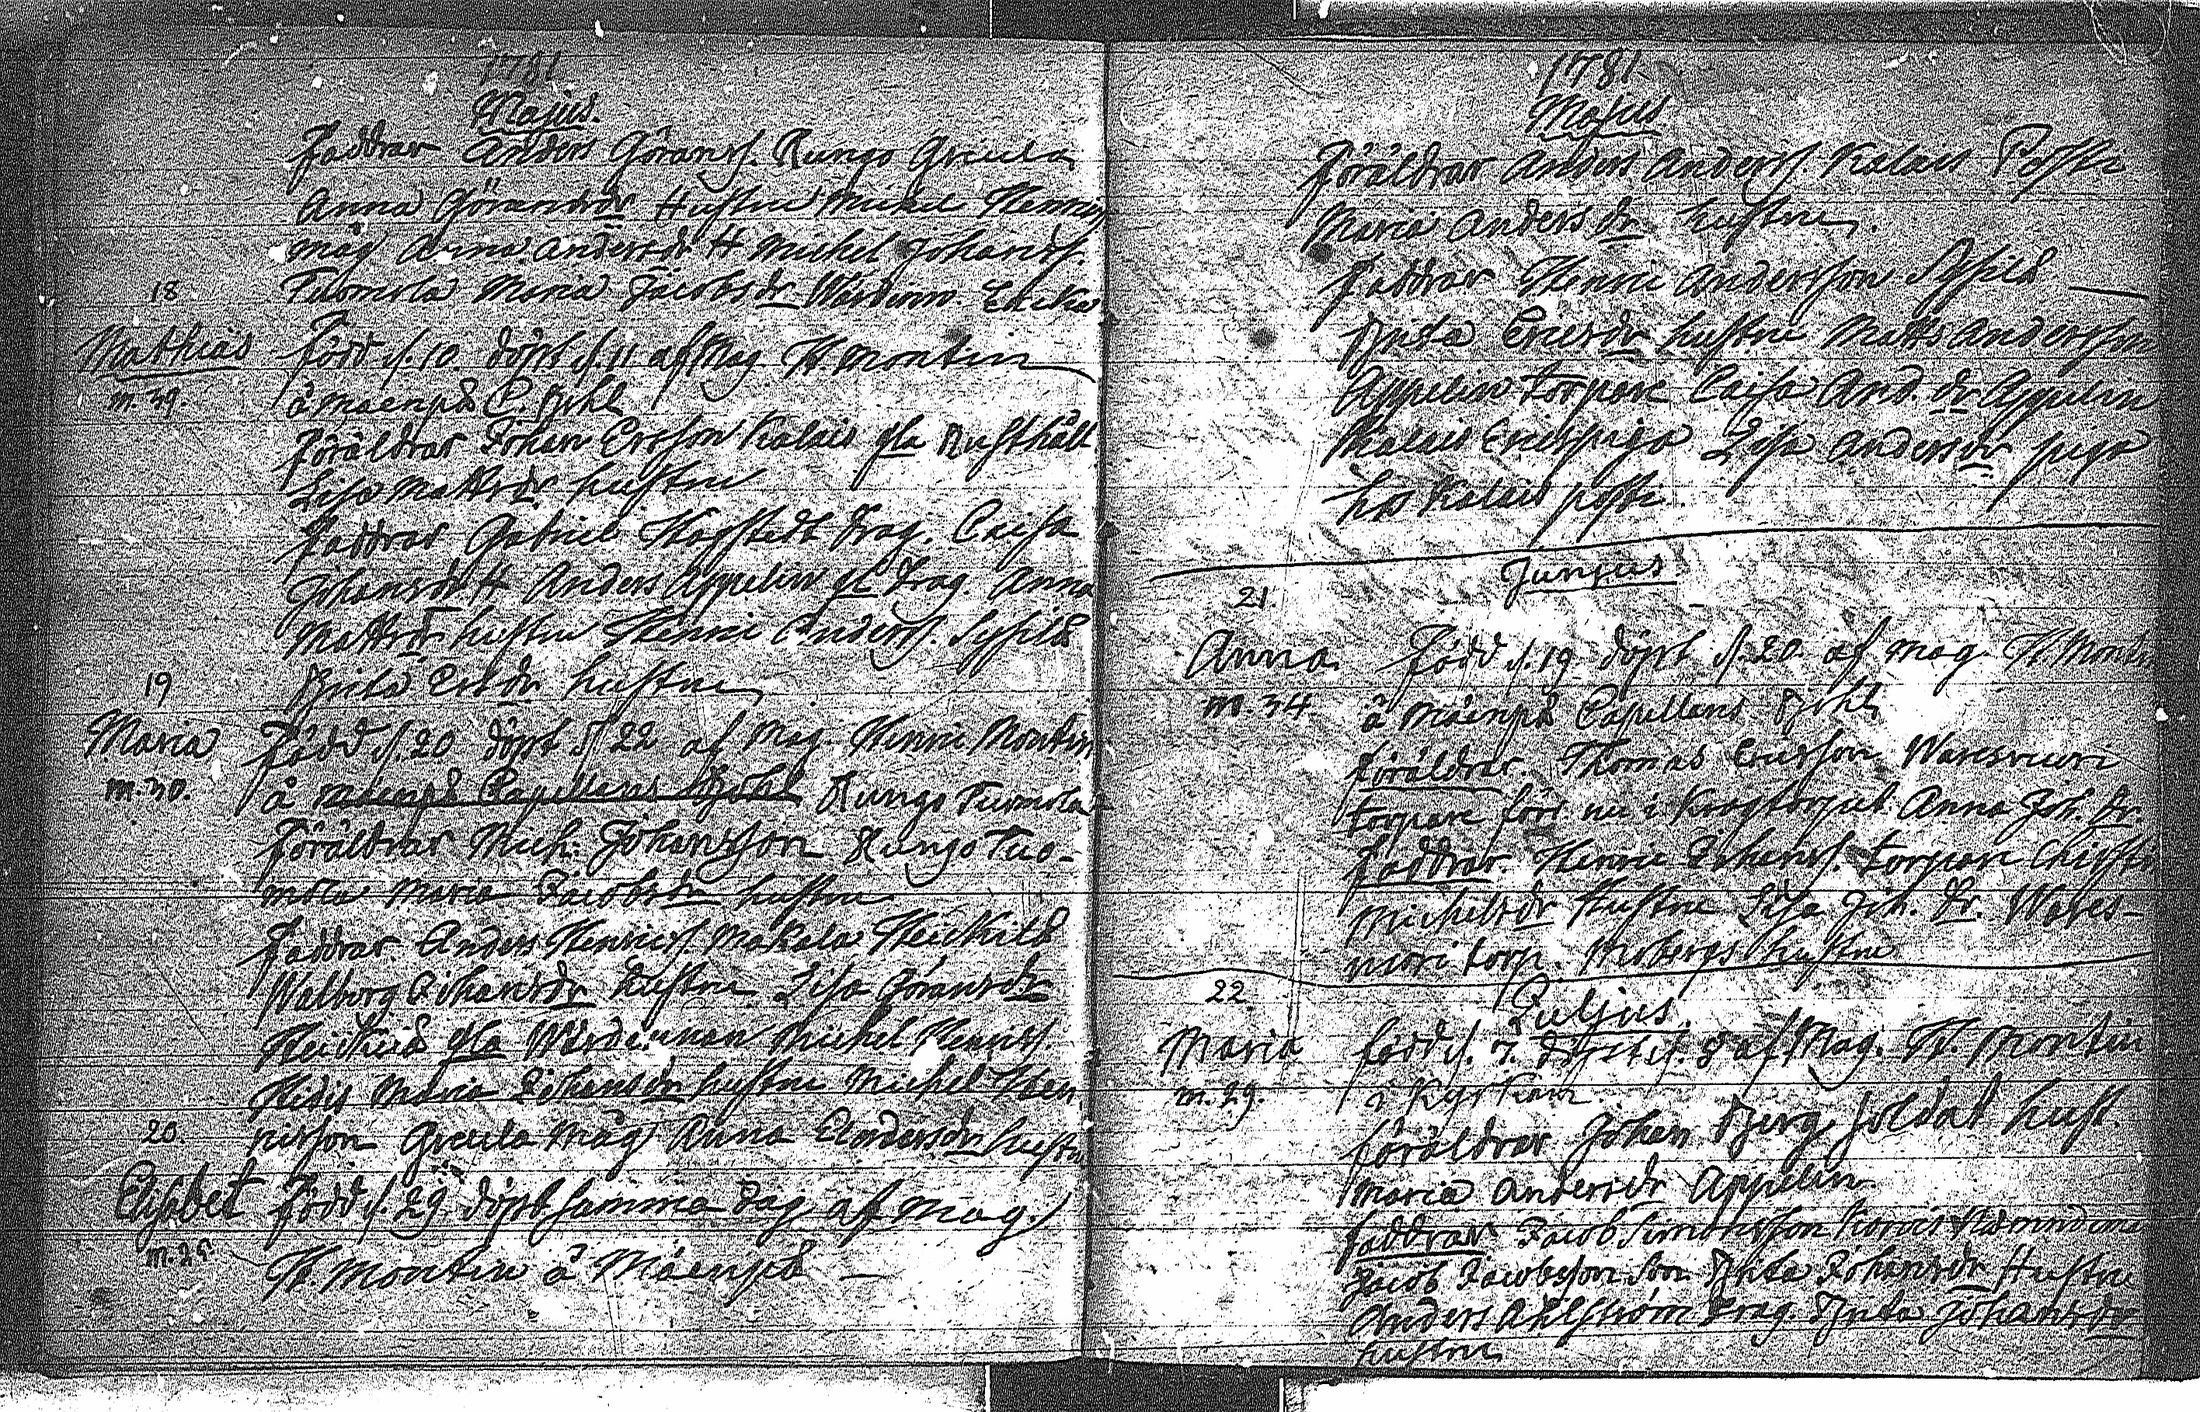 1781
Majus.
Faddrar Anders Göranss. Rungo Greula
Anna Göransdr Hustru Michel Henris
måg Anna Andersdr H Michel Johanss.
Tuomola Maria Jacobsdr Wärdinn
18
Mathias
m. 39.
född d. 10. döpt d. 11 af Mag H. Montin
å Mäenpä C. Bohl
föräldrar Johan Ersson Kalais gla Rusthåll
Lisa Mattsdr hustru
faddrar Gabriel Skogstedt Drag. Caisa
Johansdr H Anders Appelin gl Drag. Anna
Mattsdr hustru Henric Anderss. Sippilä
Brita Ersdr hustru
19
Maria
m. 30.
född d. 20 döpt d 22 af Mag. Henric Montin
å Mäenpä Capellans Bohl Rungo Tuomola
Föräldrar Mich: Johansson Rungo Tuo-
mola Maria Jacobsdr hustru
faddrar Anders Henricss. Makala Heickilä
Walborg Johansdr hustru Lisa Göransdr
Heickilä gla Wärdinnan Michel Henriss
Maria Johansdr hustru Michel Hen
ricsson Greula Måg Anna Andersdr hustru
20.
Elisabet
m. 25
född d. 29 döpt samma dag af Mag.
H. Montin å Mäenpä
1781
Majus
föräldrar Anders Anderss. Kalais
Maria Anders dr hustru
faddrar Henric Andersson
Brita Ericsdr hustru Matts Andersson
Appelin torpare Caisa And. dr Appelin
Kalais Lisa Andersdr piga
hos Kalais
Junjus
21.
Anna
m. 34
Född d. 19 döpt d. 20 af Mag H Montin
å Mäenpä Capellans Bohl
föräldrar Thomas Ericsson Waresvuori
torpare förr nu i Krogtorpet Anna Joh. Dr.
faddrar Henric Johanss. torpare
Michelsdr Hustru Lisa Joh. Dr. Wares-
vuori torp. Mobergs hustru
22
Juljus
Maria
m. 29.
född d. 7. döpt d. 8 af Mag. H. Montin
i Kyrkan
föräldrar Johan Berg soldat hust.
Maria Andersdr Appelin
faddrar Jacob Simonsson
Jacob Jacobsson son Brita Johansdr Hustru
Anders Ahlström Drag. Brita Johansdr
hustru